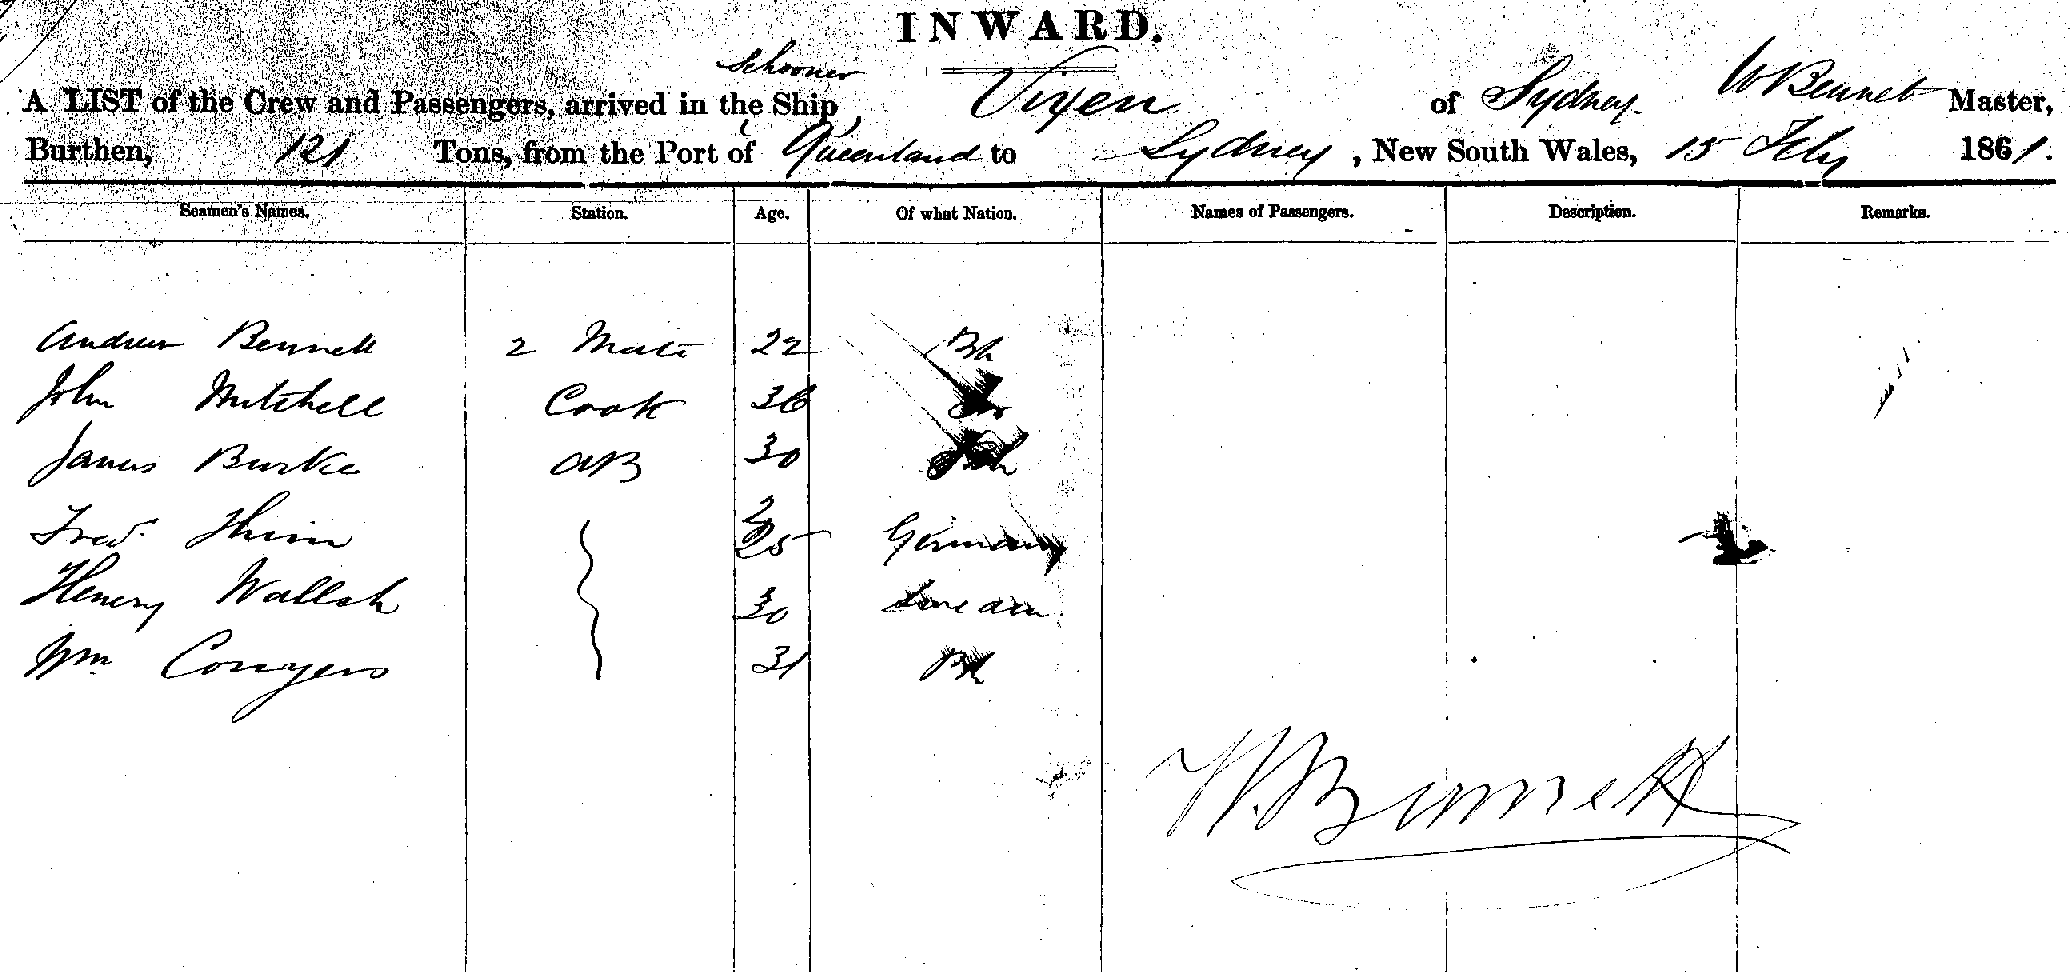 INWARD.
Schooner
A LIST of the Crew and Passengers, arrived in the Ship, Vixen of Sydney W Bennet Master,
Burthen, 121 Tons, from the Port of Queenland to Sydney, New South Wales, 15 Feby 1861.
Seamen's Names. Station. Age. Of what Nation. Names of Passengers. Description. Remarks.
Andrew Bennett 2 Mate 22 Bh
John Mitchell Cook 36
James Burke AB 30
Fred. 25 Germany
Henery Wallsh 30
Wm. Conyers 31 Bh
W. Bennett